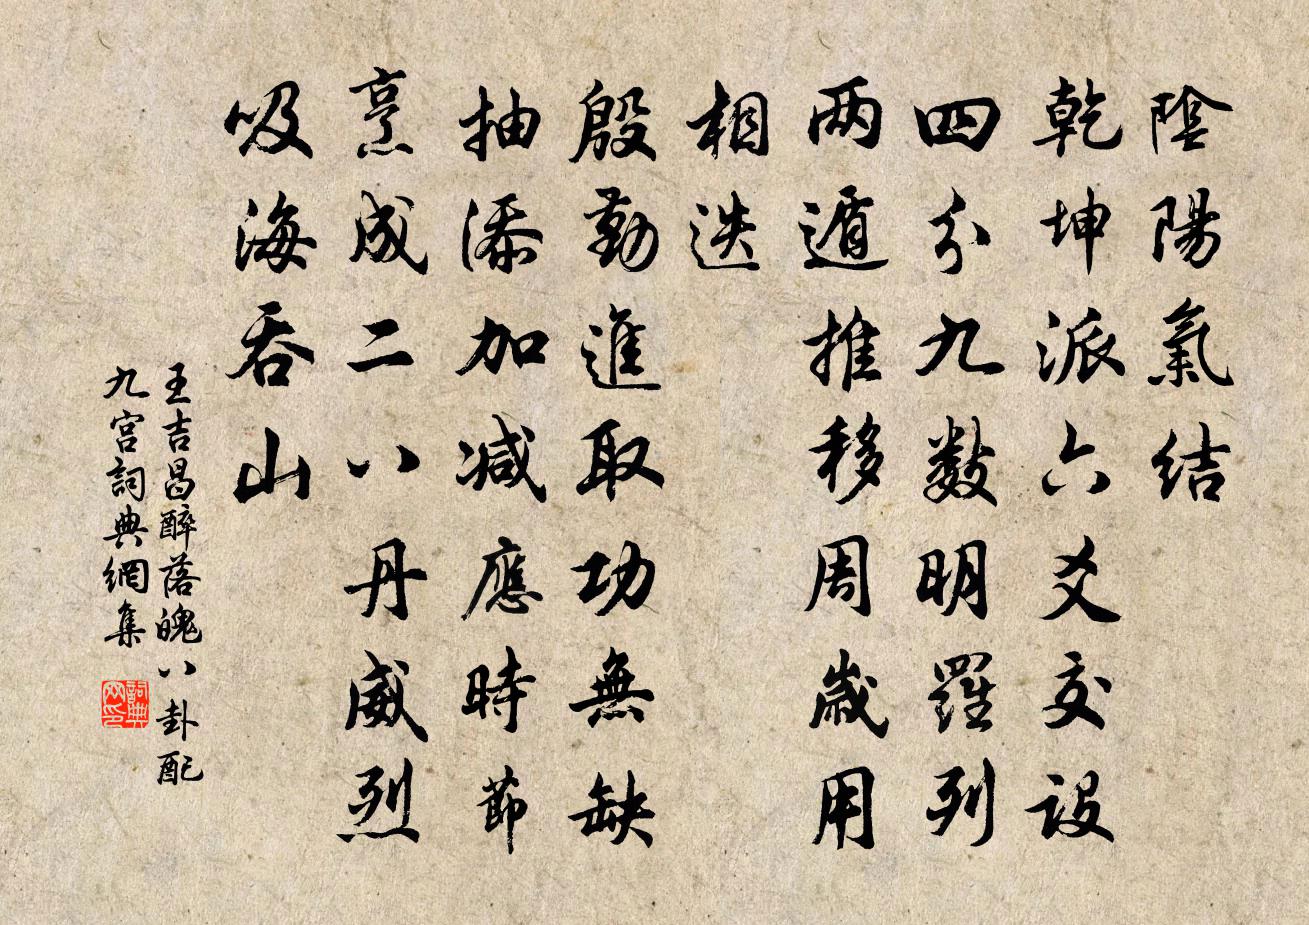 陰陽氣結
乾坤派六爻交設
四分九數明羅列
兩遁推移周歲用
相迭
殷勤進取功無缺
抽添加減應時節
烹成二八丹威烈
吸海吞山
王吉昌醉落魄八卦配
九宮詞典網集
詞典
网印